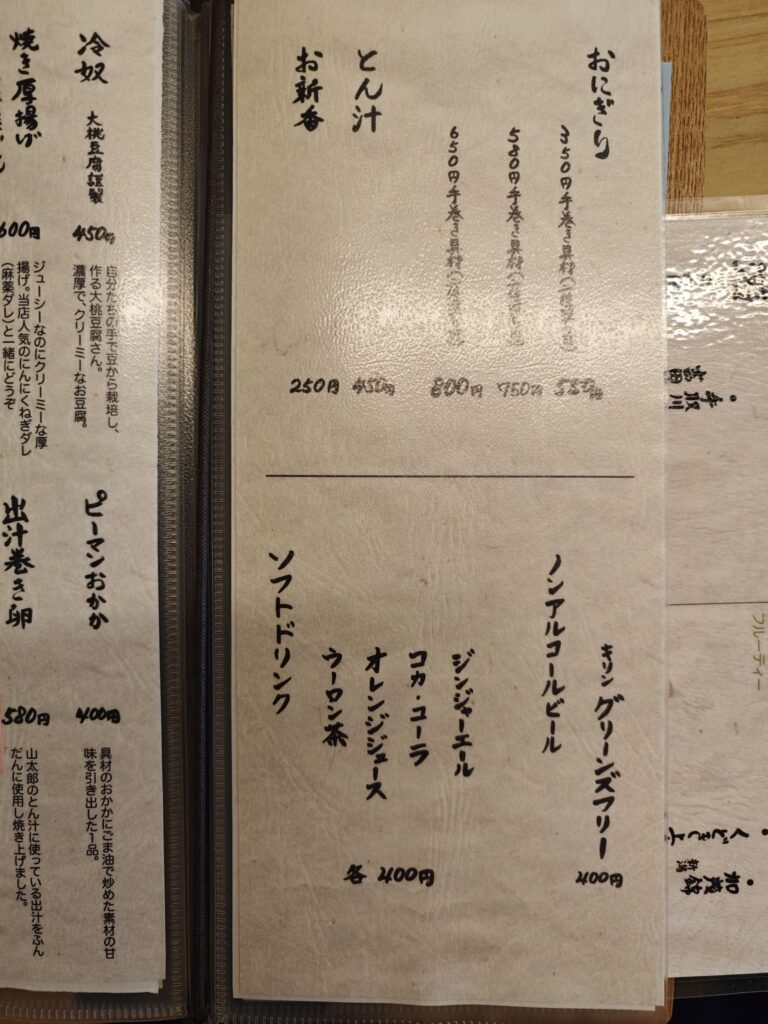 おにぎり
350円手巻き具材
580円
580円手巻き具材
750円
650円手巻き具材
800円
とん汁
450円
お新香
250円
ノンアルコールビール
キリン グリーンズフリー
400円
ソフトドリンク
ジンジャーエール
コカ・コーラ
オレンジジュース
ウーロン茶
各 400円
冷奴 大桃豆腐謹製
450円
自分たちの手で豆から栽培し、
作る大桃豆腐さん。
濃厚で、クリーミーなお豆腐。
焼き厚揚げ
600円
ジューシーなのにクリーミーな厚
揚げ。当店人気のにんにくねぎダレ
(麻薬ダレ)と一緒にどうぞ
ピーマンおかか
400円
具材のおかかにごま油で炒めた素材の甘
味を引き出した1品。
出汁巻き卵
580円
山太郎のとん汁に使っている出汁をふん
だんに使用し焼き上げました。
・手取川
吉田
フルーティー
・くどき上
・加茂錦
新潟